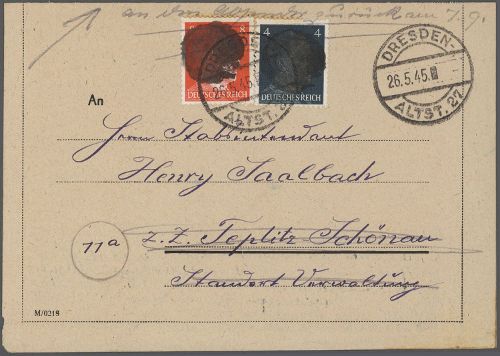 an den Absender zurück am 7.9.
8 4
DEUTSCHES REICH DEUTSCHES REICH
DRESDEN-
26.5.45
ALTST. 27
DRESDEN-
26.5.45
ALTST. 27
An
Herrn Stabsintendant
Henry Saalbach
11a
z. Z. Teplitz Schönau
Standort Verwaltung
M/0219